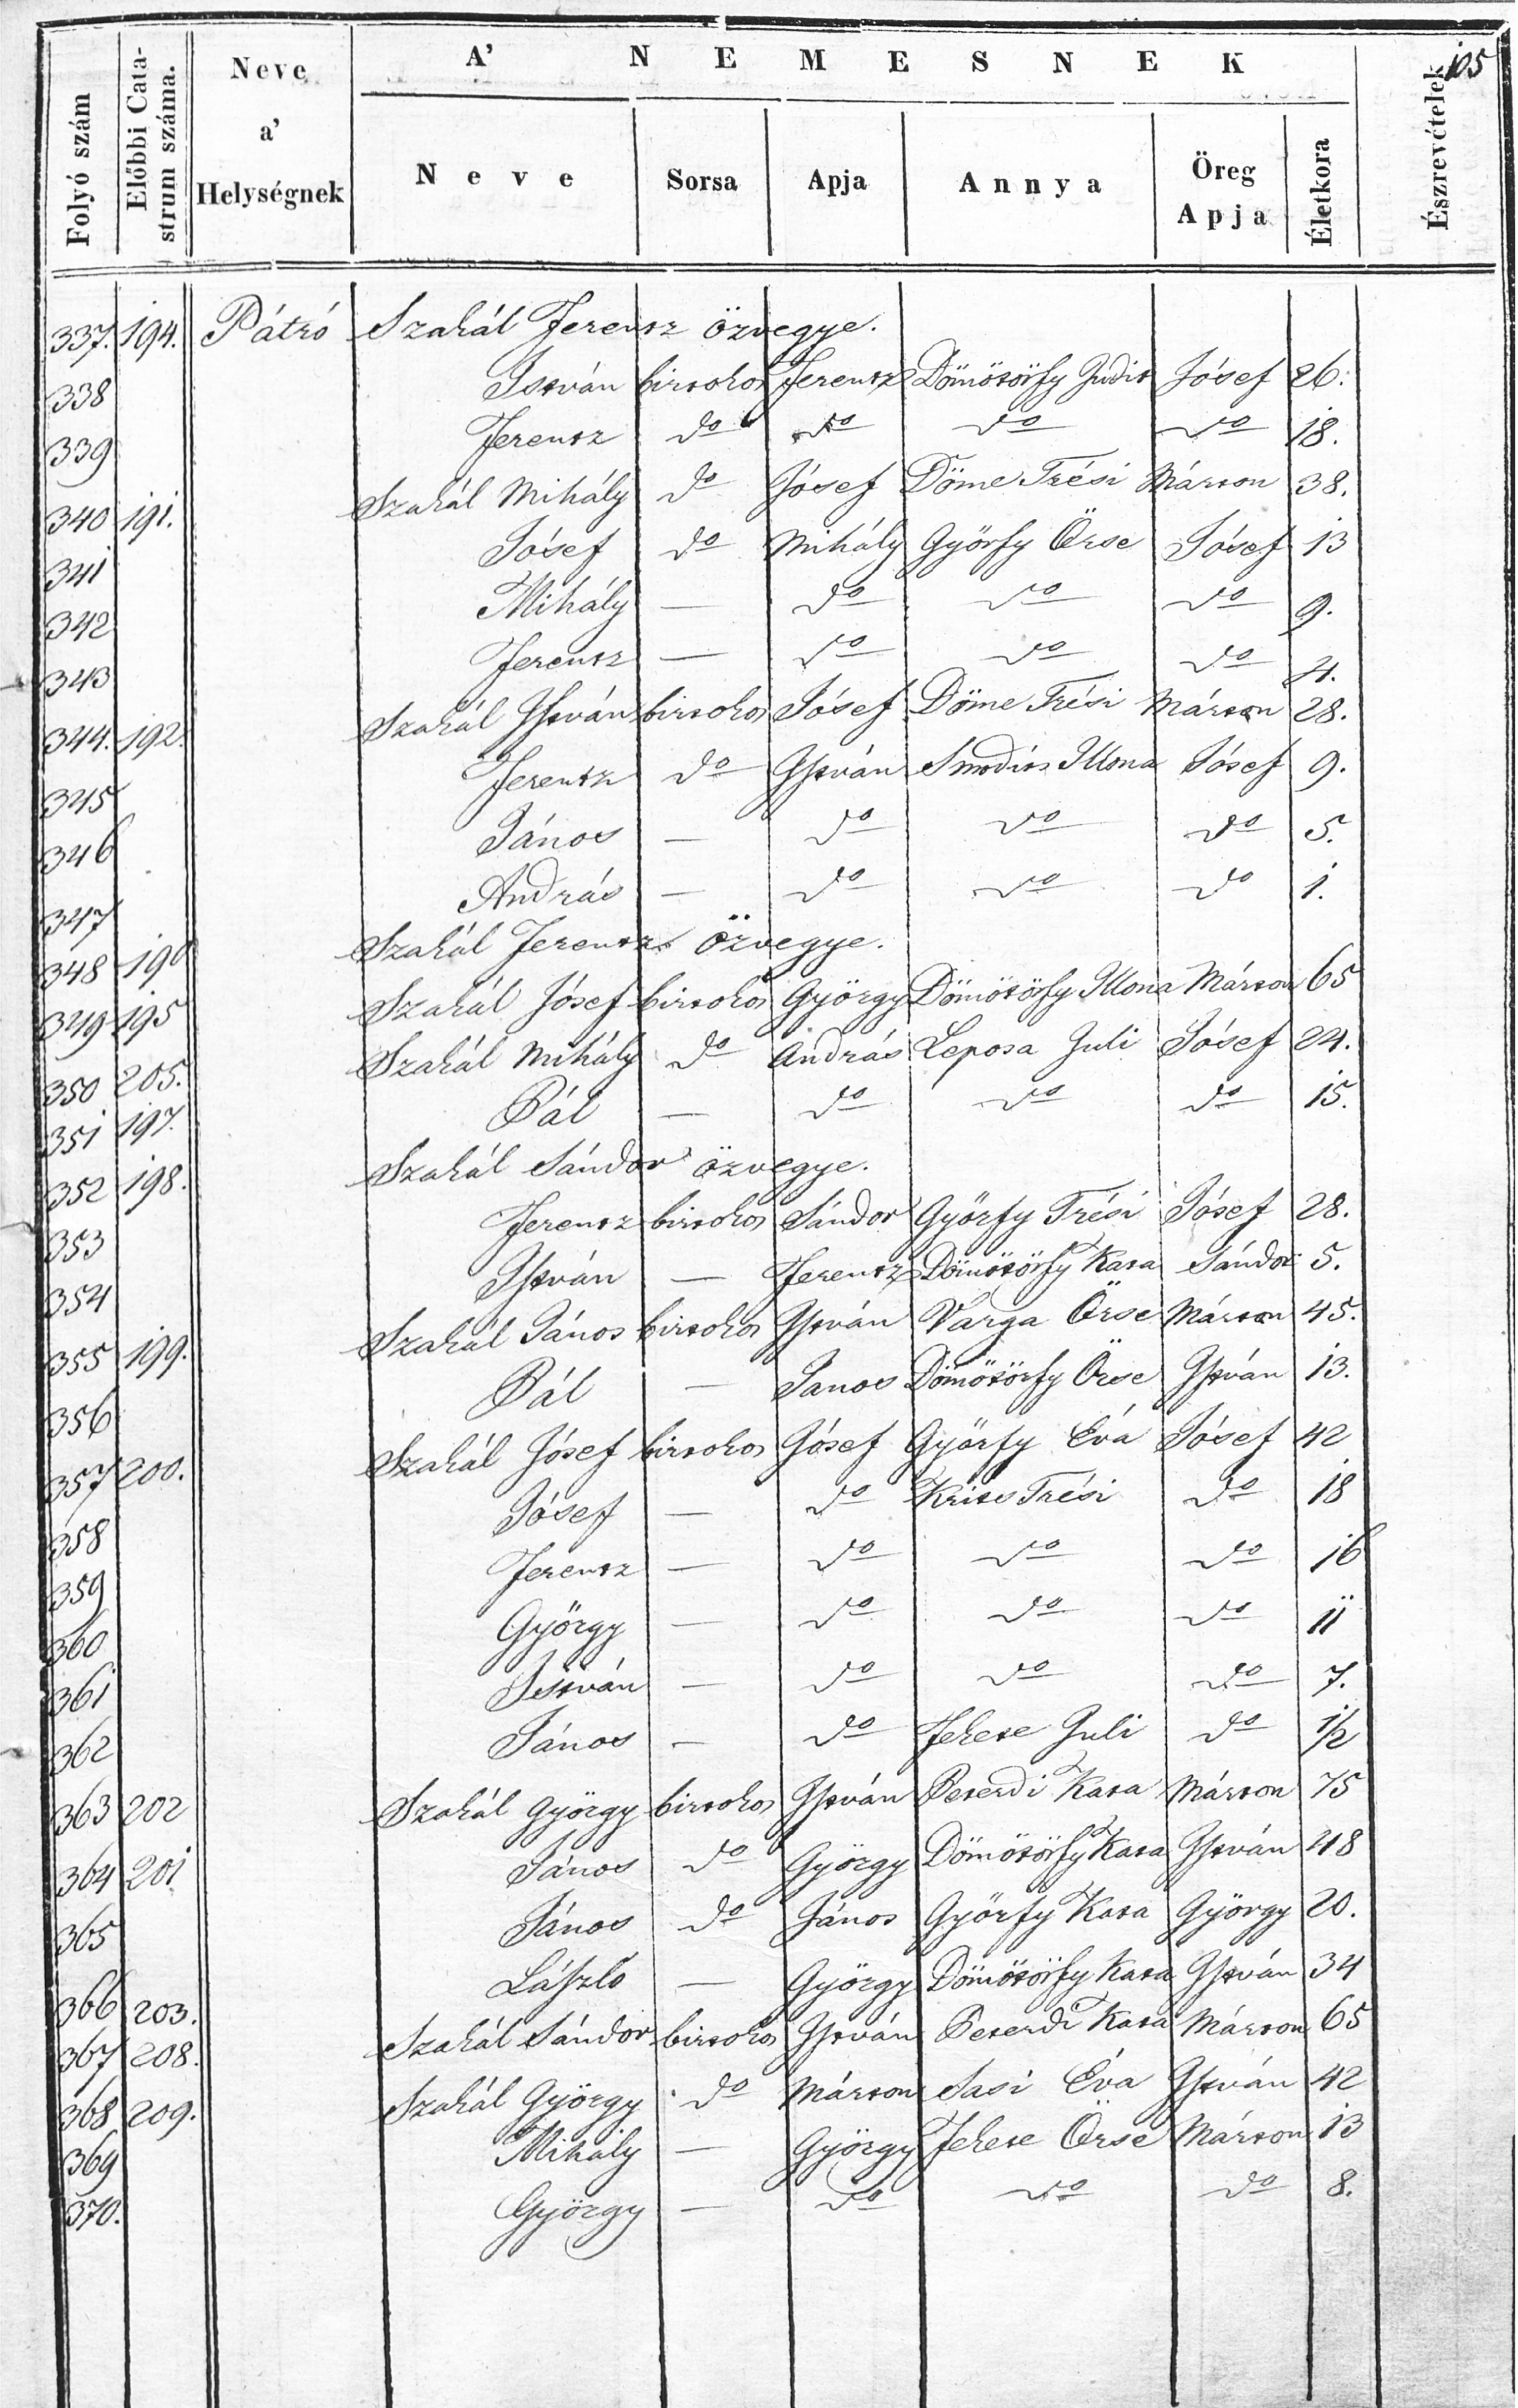 105
A' NEMESNEK
Folyó szám | Előbbi Catastrum száma. | Neve a' Helységnek | Neve | Sorsa | Apja | Annya | Öreg Apja | Életkora | Észrevételek
337. 194. Pátró Szakál Ferentz özvegye.
338 István birtokos Ferentz Dömötörfy Judit Jósef 26.
339 Ferentz do do do do 18.
340 191. Szakál Mihály do Jósef Döme Trési Márton 38.
341 Jósef do Mihály Györfy Örse Jósef 13
342 Mihály — do do do 9.
343 Ferentz — do do do 4.
344. 192. Szakál István birtokos Jósef Döme Trési Márton 28.
345 Ferentz do István Smodits Illona Jósef 9.
346 János — do do do 5.
347 András — do do do 1.
348 190 Szakál Ferentz özvegye.
349 195 Szakál Jósef birtokos György Dömötörfy Illona Márton 65
350 205. Szakál Mihály do András Leposa Juli Jósef 24.
351 197. Pál — do do do 15.
352 198. Szakál Sándor özvegye.
353 Ferentz birtokos Sándor Györfy Trési Jósef 28.
354 István — Ferentz Dömötörfy Kata Sándor 5.
355 199. Szakál János birtokos István Varga Örse Márton 45.
356 Pál — Janos Dömötörfy Örse István 13.
357 200. Szakál Jósef birtokos Jósef Györfy Éva Jósef 42
358 Jósef — do Trési do 18
359 Ferentz — do do do 16
360 György — do do do 11
361 István — do do do 7.
362 János — do Fekete Juli do 1/2
363 202 Szakál György birtokos István Peterdi Kata Márton 75
364 201 János do György Dömötörfy Kata István 48
365 János do János Györfy Kata György 20.
366 203. László — György Dömötörfy Kata István 34
367 208. Szakál Sándor birtokos István Peterdi Kata Márton 65
368 209. Szakál György do Márton Sasi Éva István 42
369 Mihály — György Fekete Örse Márton 13
370. György — do do do 8.